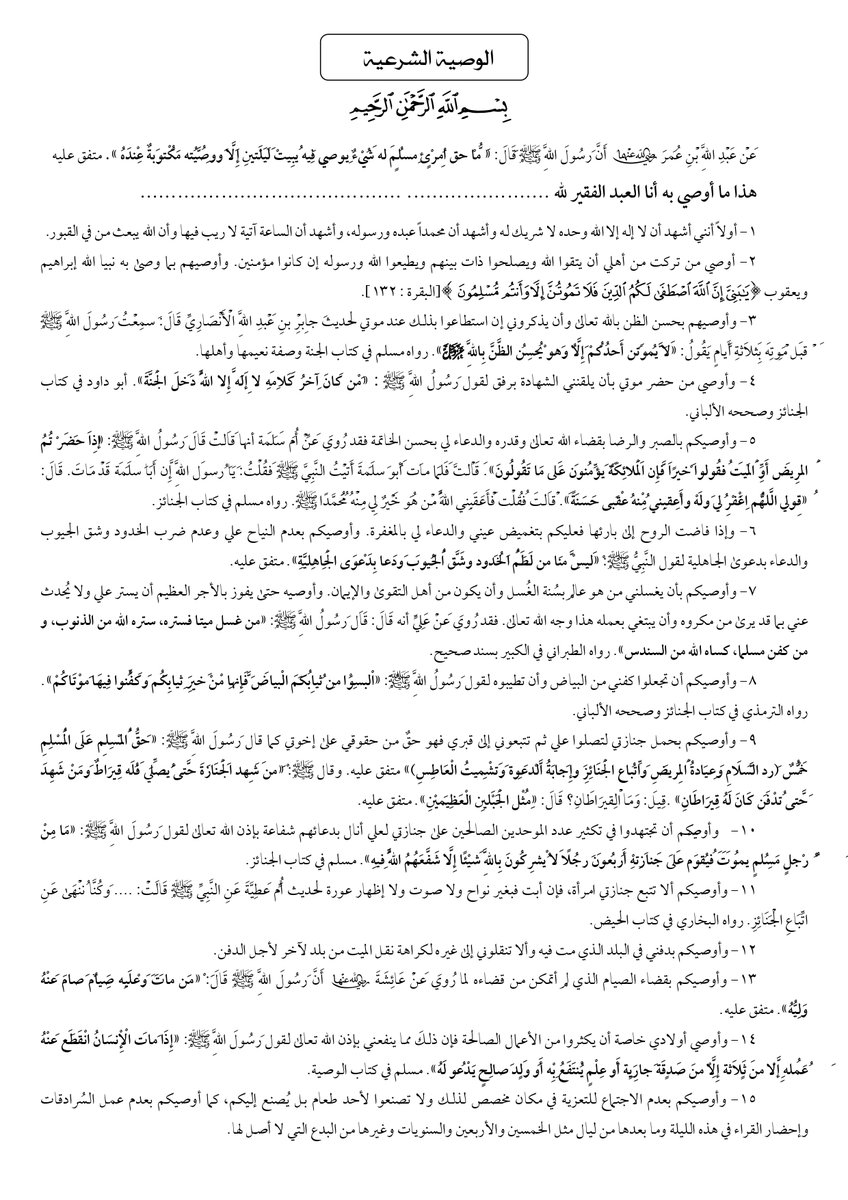 الوصية الشرعية
بِسْمِ اللَّهِ الرَّحْمَٰنِ الرَّحِيمِ
عَن عَبْدِ اللَّهِ بْنِ عُمَرَ رضي الله عنهما أَنَّ رَسُولَ اللَّهِ ﷺ قَالَ: «مَّا حق امرِئٍ مسلمٍ له شَيْءٌ يوصي فِيهِ يَبِيتُ لَيلَتينِ إِلَّا ووصِيَّته مَكْتوبَةٌ عِنْدَهُ». متفق عليه
هذا ما أوصي به أنا العبد الفقير لله ...................... ........................................
١- أولاً أنني أشهد أن لا إله إلا الله وحده لا شريك له وأشهد أن محمداً عبده ورسوله، وأشهد أن الساعة آتية لا ريب فيها وأن الله يبعث من في القبور.
٢- أوصي من تركت من أهلي أن يتقوا الله ويصلحوا ذات بينهم ويطيعوا الله ورسوله إن كانوا مؤمنين. وأوصيهم بما وصىٰ به نبيا الله إبراهيم
ويعقوب ﴿يَٰبَنِىَّ إِنَّ ٱللَّهَ ٱصْطَفَىٰ لَكُمُ ٱلدِّينَ فَلَا تَمُوتُنَّ إِلَّا وَأَنتُم مُّسْلِمُونَ﴾ [البقرة : ١٣٢].
٣- وأوصيهم بحسن الظن بالله تعالىٰ وأن يذكروني إن استطاعوا بذلك عند موتي لحديث جابِرِ بنِ عَبْدِ اللَّهِ الْأَنْصَارِيِّ قَالَ: سمِعْتُ رَسُولَ اللَّهِ ﷺ
قبل موتِهِ بِثلاثةِ أيامٍ يَقُولُ: «لاَ يَمُوتَن أحدُكُمْ إِلَّا وهو يُحسِنُ الظَّنَّ بِاللَّهِ ﷻ». رواه مسلم في كتاب الجنة وصفة نعيمها وأهلها.
٤- وأوصي من حضر موتي بأن يلقنني الشهادة برفق لقول رَسُولُ اللَّهِ ﷺ : «مْن كَانَ آخِرُ كَلامِهِ لا إِلَهَ إِلا اللَّهُ دَخلَ الْجَنَّةَ». أبو داود في كتاب
الجنائز وصححه الألباني.
٥- وأوصيكم بالصبر والرضا بقضاء الله تعالىٰ وقدره والدعاء لي بحسن الخاتمة فقد رُوِيَ عَنْ أُم سَلَمة أنها قَالتْ قَالَ رَسُولُ اللَّهِ ﷺ: «إذَا حَضَرْ تُمُ
المرِيضَ أوْ الميتَ فَقُولوا خَيرًا فَإِن الْملائِكَةَ يؤَمِّنونَ عَلَى مَا تَقُولُونَ». قَالتْ فَلَمَّا مات أبو سَلمةَ أتيْتُ النَّبِيَّ ﷺ فَقُلْتُ: يا رسولَ اللَّهِ إِن أَبَا سلَمَةَ قَدْ مَاتَ. قَالَ:
«قولي اللَّهُمَّ اغْفِرْ لِي ولَهُ وأَعقِبني مِنْهُ عُقبى حَسَنَةً». قَالَتْ فَقُلْت فَأَعْقَبني اللَّهُ مَّنْ هُوَ خَيْرٌ لِي مِنْهُ مُحَمَّدًا ﷺ. رواه مسلم في كتاب الجنائز.
٦- وإذا فاضت الروح إلىٰ بارئها فعليكم بتغميض عيني والدعاء لي بالمغفرة. وأوصيكم بعدم النياح علي وعدم ضرب الخدود وشق الجيوب
والدعاء بدعوىٰ الجاهلية لقول النَّبِيُّ ﷺ: «لَيسَ مِنا من لَطَمَ الْخدود وشَقَّ الْجُيوبَ ودَعا بِدَعْوَى الْجَاهِلِيَّةِ». متفق عليه.
٧- وأوصيكم بأن يغسلني من هو عالم بسُنة الغُسل وأن يكون من أهل التقوىٰ والإيمان. وأوصيه حتىٰ يفوز بالأجر العظيم أن يستر علي ولا يُحدث
عني بما قد يرىٰ من مكروه وأن يبتغي بعمله هذا وجه الله تعالىٰ. فقد رُوِيَ عَنْ عَلِيٍّ أنه قَالَ: قَالَ رَسُولُ اللَّهِ ﷺ: «من غسل ميتا فستره، ستره الله من الذنوب، و
من كفن مسلما، كساه الله من السندس». رواه الطبراني في الكبير بسند صحيح.
٨- وأوصيكم أن تجعلوا كفني من البياض وأن تطيبوه لقول رَسُولُ اللَّهِ ﷺ: «الْبسوُا من ثِيابِكُم الْبياضَ فَإِنها مْنْ خيرِ ثِيابِكُم وَكَفِّنوا فِيهَا مَوْتَاكُمْ».
رواه الترمذي في كتاب الجنائز وصححه الألباني.
٩- وأوصيكم بحمل جنازتي لتصلوا علي ثم تتبعوني إلىٰ قبري فهو حقٌ من حقوقي علىٰ إخوتي كما قال رَسُولَ اللَّهِ ﷺ: «حَقُّ الْمُسْلِمِ عَلَى الْمُسْلِمِ
خَمْسٌ (رد السَّلَامِ وَعِيَادةُ المرِيضِ واتِّباع الْجَنَائِزِ وإجابةُ الدعوة وتَشْمِيتُ الْعاطِسِ)» متفق عليه. وقال ﷺ: «من شَهِد الْجَنازَةَ حَتَّى يُصَلِّي فَلَه قِيرَاطٌ وَمَنْ شَهِدَ
حَتَّى تُدْفَن كَانَ لَهُ قِيرَاطَانِ». قِيلَ: وَمَا الْقِيرَاطَانِ؟ قَالَ: «مِثْلُ الْجَبَلَيْنِ الْعَظِيمَيْنِ». متفق عليه.
١٠- وأوصِكم أن تجتهدوا في تكثير عدد الموحدين الصالحين علىٰ جنازتي لعلي أنال بدعائهم شفاعة بإذن الله تعالىٰ لقول رَسُولَ اللَّهِ ﷺ: «مَا مِنْ
رَجُلٍ مُسْلِمٍ يموُت فَيُقوم عَلَى جَنازَتِهِ أَرْبعُونَ رجُلًا لَا يُشرِكُونَ بِاللَّهِ شَيْئًا إِلَّا شَفَّعَهُمُ اللَّهُ فِيهِ». مسلم في كتاب الجنائز.
١١- وأوصيكم ألا تتبع جنازتي امرأة، فإن أبت فبغير نواح ولا صوت ولا إظهار عورة لحديث أُم عَطِيَّةَ عَنِ النَّبِيِّ ﷺ قَالَتْ: .... وَكُنَّا نُنْهَىٰ عَنِ
اتِّبَاعِ الْجَنَائِزِ. رواه البخاري في كتاب الحيض.
١٢- وأوصيكم بدفني في البلد الذي مت فيه وألا تنقلوني إلىٰ غيره لكراهة نقل الميت من بلد لآخر لأجل الدفن.
١٣- وأوصيكم بقضاء الصيام الذي لم أتمكن من قضاءه لما رُوِيَ عَنْ عَائِشَةَ رضي الله عنها أَنَّ رَسُولَ اللَّهِ ﷺ قَالَ: «مَن ماتَ وَعلَيهِ صِيامٌ صامَ عَنْهُ
وَلِيُّهُ». متفق عليه.
١٤- وأوصي أولادي خاصة أن يكثروا من الأعمال الصالحة فإن ذلكَ مما ينفعني بإذن الله تعالىٰ لقول رَسُولَ اللَّهِ ﷺ: «إِذَا مَاتَ الْإِنْسَانُ انْقَطَع عَنْهُ
عَمَلُهُ إِلَّا مِنْ ثَلَاثَة إِلَّا مِنْ صَدقَة جَارِية أَو عِلْمٍ يُنْتَفَعُ بِه أَو وَلدٍ صالِحٍ يَدْعُو لَهُ». مسلم في كتاب الوصية.
١٥- وأوصيكم بعدم الاجتماع للتعزية في مكان مخصص لذلك ولا تصنعوا لأحد طعام بل يُصنع إليكم، كما أوصيكم بعدم عمل السُرادقات
وإحضار القراء في هذه الليلة وما بعدها من ليال مثل الخمسين والأربعين والسنويات وغيرها من البدع التي لا أصل لها.